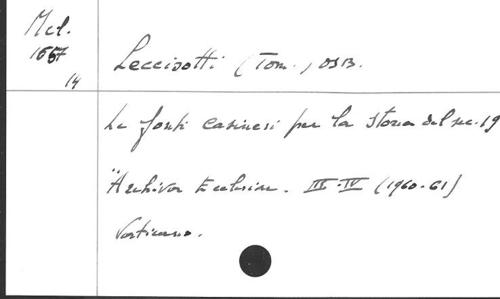 Mcl.
1667
14
Leccisotti (Tom., OSB.
Le fonti casinesi per la storia del sec. 19
"Archiva Ecclesiae. III-IV (1960-61)
Vaticano.